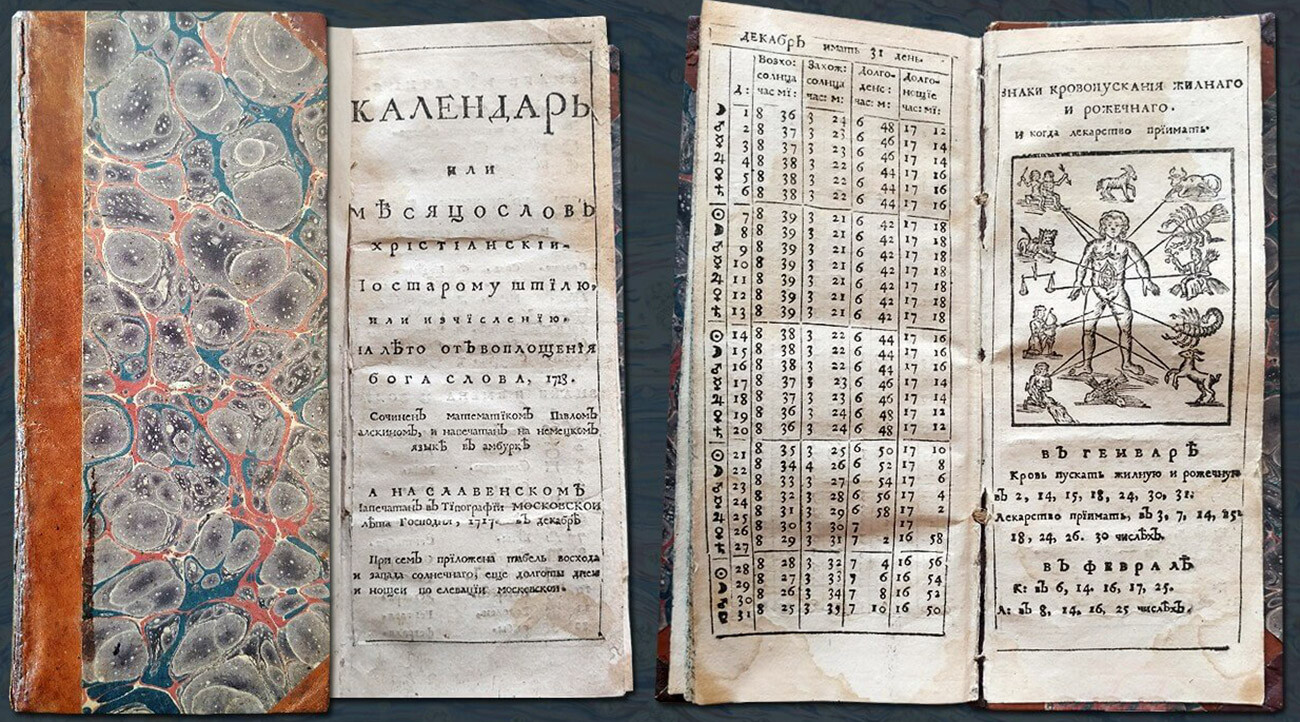 КАЛЕНДАРЬ
ИЛИ
МѢСЯЦОСЛОВЪ
ХРІСТІАНСКІИ.
По старому штілю,
или изчісленію.
НА ЛѢТО ОТЪ ВОПЛОЩЕНІЯ
БОГА СЛОВА, 1718.
Сочиненъ математікомъ Павломъ
алскиномъ, и напечатанъ на немецкомъ
языкѣ въ амбуркѣ
А НА СЛАВЕНСКОМЪ
Напечатанъ въ Тіпографіи МОСКОВСКОИ
лѣта Господня, 1717. въ декабрѣ
При семъ пріложена табель восхода
и запада солнечнаго, еще долготы днеи
и нощеи по елеваціи московскои.
ДЕКАБРЬ имать 31 день.
Д: Возхо: солнца час мі: Захож: солнца час: м: Долго- денс: час: м: Долго- нощіе час: мі:
☽ 1 8 36 3 24 6 48 17 12
♂ 2 8 37 3 23 6 46 17 14
☿ 3 8 37 3 23 6 46 17 14
♃ 4 8 38 3 22 6 44 17 16
♀ 5 8 38 3 22 6 44 17 16
♄ 6 8 38 3 22 6 44 17 16
☉ 7 8 39 3 21 6 42 17 18
☽ 8 8 39 3 21 6 42 17 18
♂ 9 8 39 3 21 6 42 17 18
☿ 10 8 39 3 21 6 42 17 18
♃ 11 8 39 3 21 6 42 17 18
♀ 12 8 39 3 21 6 42 17 18
♄ 13 8 39 3 21 6 42 17 18
☉ 14 8 38 3 22 6 44 17 16
☽ 15 8 38 3 22 6 44 17 16
♂ 16 8 38 3 22 6 44 17 16
☿ 17 8 37 3 23 6 46 17 14
♃ 18 8 37 3 23 6 46 17 14
♀ 19 8 36 3 24 6 48 17 12
♄ 20 8 36 3 24 6 48 17 12
☉ 21 8 35 3 25 6 50 17 10
☽ 22 8 34 4 26 6 52 17 8
♂ 23 8 33 3 27 6 54 17 6
☿ 24 8 32 3 28 6 56 17 4
♃ 25 8 31 3 29 6 58 17 2
♀ 26 8 30 3 30 7 17
♄ 27 8 29 3 31 7 2 16 58
☉ 28 8 28 3 32 7 4 16 56
☽ 29 8 27 3 33 7 6 16 54
♂ 30 8 26 3 34 7 8 16 52
☿ 31 8 25 3 35 7 10 16 50
ЗНАКИ КРОВОПУСКАНІЯ ЖИЛНАГО
И РОЖЕЧНАГО.
И когда лекарство пріимать.
ВЪ ГЕНВАРѢ
Кровь пускать жилную и рожечную
въ 2, 14, 15, 18, 24, 30, 31.
Лекарство пріимать, въ 3, 7, 14, 15
18, 24, 26. 30 числѣхъ.
ВЪ ФЕВРАЛѢ
К: въ 6, 14, 16, 17, 25.
Л: въ 8, 14, 16, 25 числѣхъ.